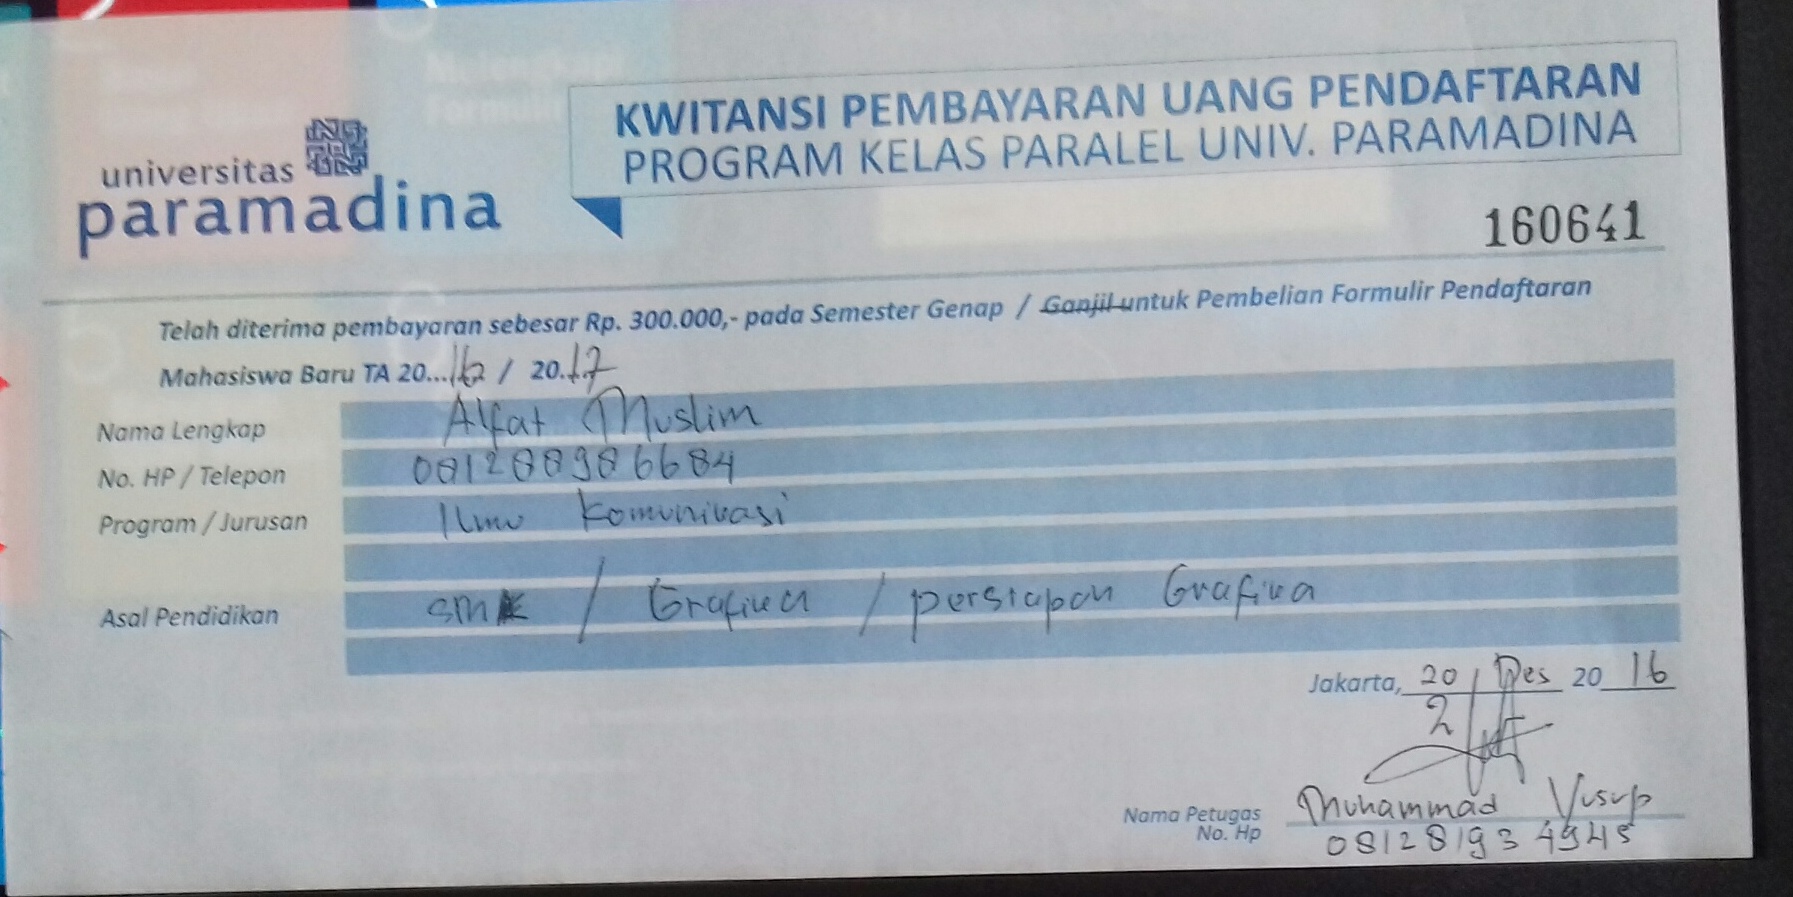 universitas
paramadina
KWITANSI PEMBAYARAN UANG PENDAFTARAN
PROGRAM KELAS PARALEL UNIV. PARAMADINA
160641
Telah diterima pembayaran sebesar Rp. 300.000,- pada Semester Genap / Ganjil untuk Pembelian Formulir Pendaftaran
Mahasiswa Baru TA 20...16 / 20.17
Nama Lengkap Alfat Muslim
No. HP / Telepon 081288986684
Program / Jurusan Ilmu Komunikasi
Asal Pendidikan SMK / Grafika / persiapan Grafika
Jakarta, 20 / Des 20 16
Nama Petugas Muhammad Yusup
No. Hp 081281934945